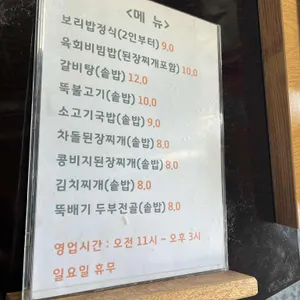 <메 뉴>
보리밥정식(2인부터) 9,0
육회비빔밥(된장찌개포함) 10,0
갈비탕(솥밥) 12,0
뚝불고기(솥밥) 10,0
소고기국밥(솥밥) 9,0
차돌된장찌개(솥밥) 8,0
콩비지된장찌개(솥밥) 8,0
김치찌개(솥밥) 8,0
뚝배기 두부전골(솥밥) 8,0
영업시간 : 오전 11시 ~ 오후 3시
일요일 휴무